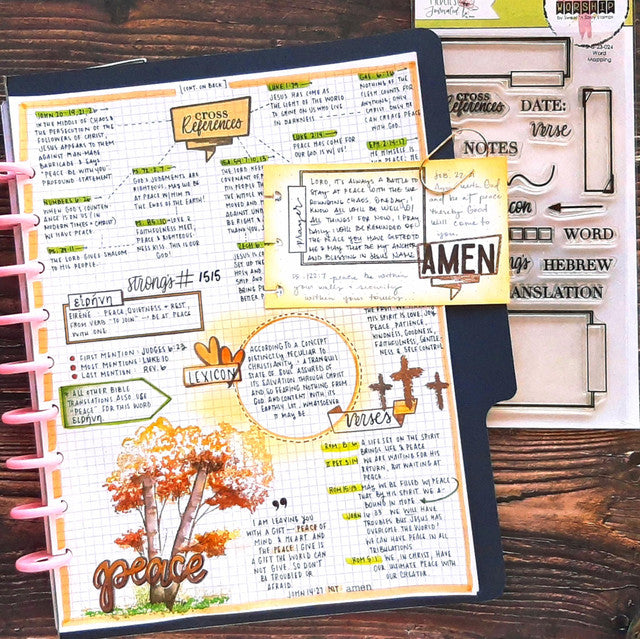 [CONT. ON BACK]
CROSS
References
JOHN 20:19, 21, 26
IN THE MIDDLE OF CHAOS &
THE PERSECUTION OF THE
FOLLOWERS OF CHRIST,
JESUS APPEARS TO THEM
AGAINST MAN-MADE
BARRICADE & SAYS
"PEACE BE WITH YOU"
PROFOUND STATEMENT.
NUMBERS 6:26
WHEN GOD'S COUNTEN
ANCE IS ON US (IN
MODERN TIMES = CHRIST)
WE HAVE PEACE.
PS. 29:11
THE LORD GIVES SHALOM
TO HIS PEOPLE.
PS. 72:3, 7
GOD'S JUDGMENTS ARE
RIGHTEOUS, MAY WE BE
AT PEACE W/HIM TO
THE ENDS OF THE EARTH
PS. 85:10 - LOVE &
FAITHFULNESS MEET;
PEACE & RIGHTEOUS-
NESS KISS. THIS IS OUR
GOD!
LUKE 1:79
JESUS HAS COME AS
THE LIGHT OF THE WORLD
TO SHINE ON US WHO LIVE
IN DARKNESS
LUKE 2:14
PEACE HAS COME FOR
US, GOD IS W/ US!
GAL 6:16
NOTHING OF THE
FLESH COUNTS FOR
ANYTHING; ONLY
CHRIST. ONLY HE
CAN CREATE PEACE
WITH GOD.
EPH 2:14-17
HE HIMSELF IS
ISA 54:7, 10, 13
strongs # 1515
εἰρήνη
EIRENE: PEACE, QUIETNESS + REST,
FROM VERB "TO JOIN" - BE AT PEACE
WITH ONE.
FIRST MENTION: JUDGES 6:23
MOST MENTION: LUKE 10
LAST MENTION: REV. 6
* ALL OTHER BIBLE
TRANSLATIONS ALSO USE
"PEACE" FOR THIS WORD
εἰρήνη.
LEXICON
ACCORDING TO A CONCEPT
DISTINCTLY PECULIAR TO
CHRISTIANITY: A TRANQUIL
STATE OF SOUL ASSURED OF
ITS SALVATION THROUGH CHRIST
AND SO FEARING NOTHING FROM
GOD AND CONTENT WITH ITS
EARTHLY LOT, WHATSOEVER
IT MAY BE.
prayer
LORD, IT'S ALWAYS A BATTLE TO
STAY AT PEACE WITH THE SUR-
ROUNDING CHAOS. ONE DAY, I
KNOW ALL WILL BE WELL W/
ALL THINGS! FOR NOW, I PRAY
DAILY I WILL BE REMINDED OF
THE PEACE YOU HAVE GIFTED TO
ME & MAY THAT BE MY ANCHOR
AND BLESSING IN JESUS' NAME.
JOB. 22:21
Agree with God
and be at peace
thereby Good
will come to
you.
AMEN
PS. 122:7 peace be within
your walls + security
within your towers.
THE FRUIT OF THE
HIS SPIRIT IS LOVE, JOY
PEACE, PATIENCE,
KINDNESS, GOODNESS,
FAITHFULNESS, GENTLE-
NESS & SELF CONTROL
verses
ROM 8:6
A LIFE SET ON THE SPIRIT
BRINGS LIFE & PEACE
II PET 3:14
WE ARE WAITING FOR HIS
RETURN, BUT WAITING AT
PEACE.
ROM 15:13
MAY WE BE FILLED W/ PEACE
THAT BY HIS SPIRIT WE A-
BOUND IN HOPE
JOHN 16:33
WE WILL HAVE
TROUBLES BUT JESUS HAS
OVERCOME THE WORLD!
WE CAN HAVE PEACE IN ALL
TRIBULATIONS
ROM 5:1
WE, IN CHRIST, HAVE
OUR ULTIMATE PEACE WITH
OUR CREATOR.
"
I AM LEAVING YOU
WITH A GIFT - PEACE OF
MIND & HEART. AND
THE PEACE I GIVE IS
A GIFT THE WORLD CAN
NOT GIVE. SO DON'T
BE TROUBLED OR
AFRAID.
JOHN 14:27 NLT amen
peace
Journaled
WORSHIP
Word
Mapping
CROSS
References
DATE:
Verse
NOTES
WORD
HEBREW